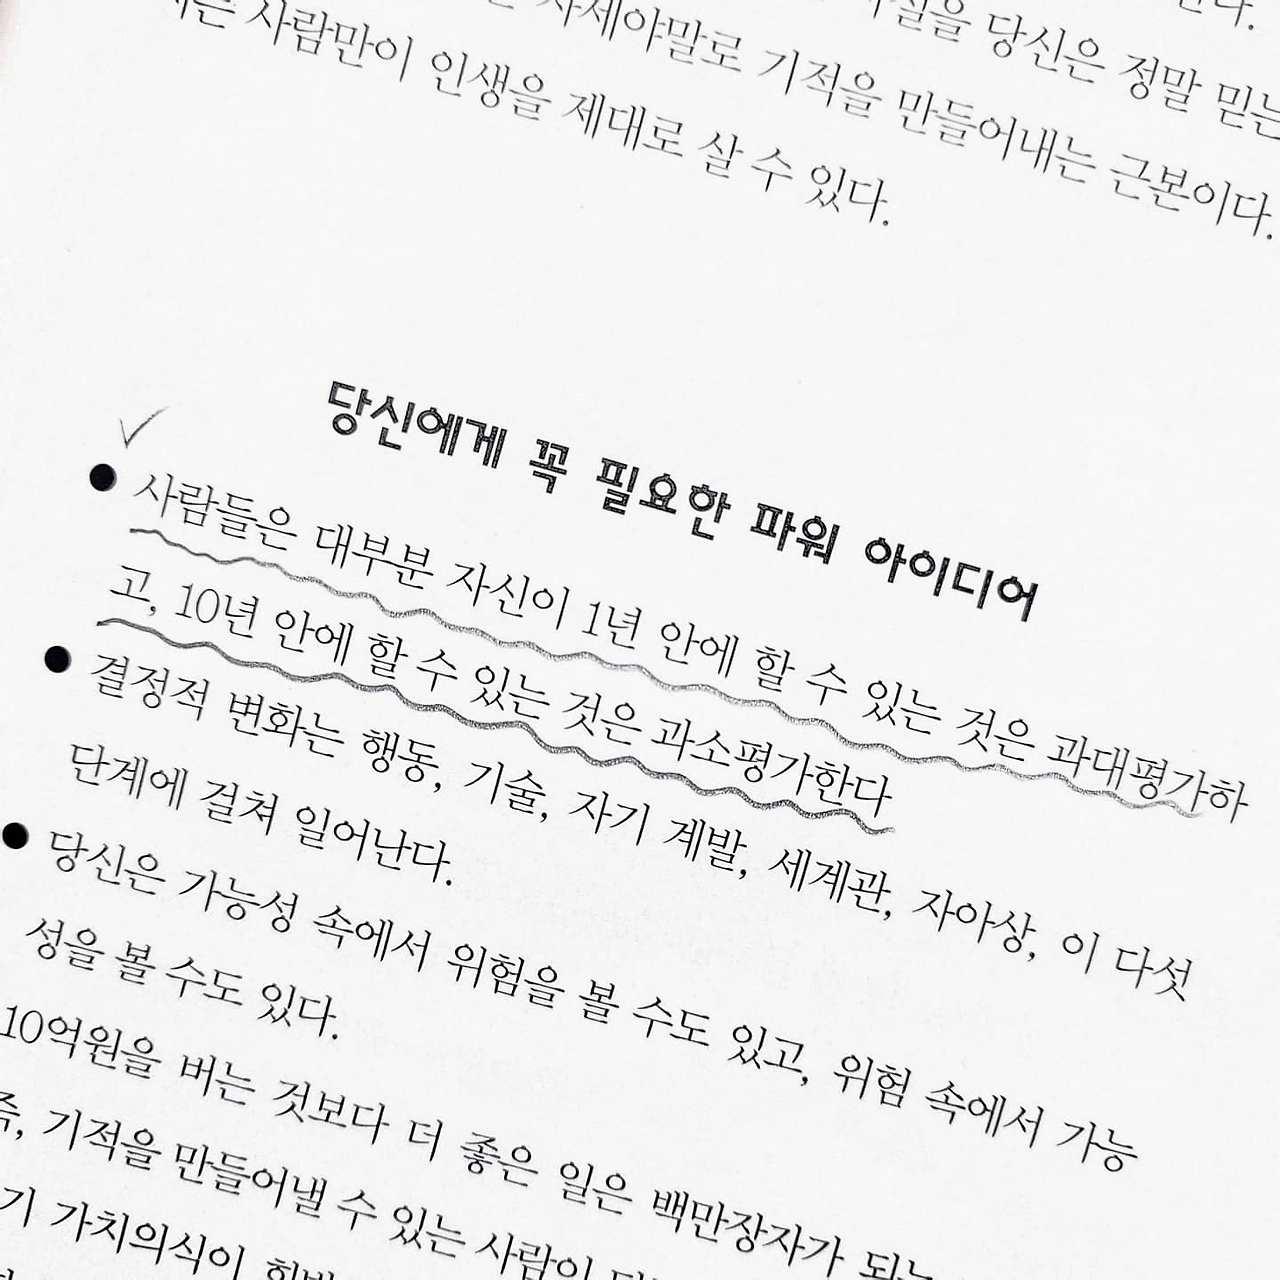 사실을 당신은 정말 믿는
자세야말로 기적을 만들어내는 근본이다.
사람만이 인생을 제대로 살 수 있다.
당신에게 꼭 필요한 파워 아이디어
● 사람들은 대부분 자신이 1년 안에 할 수 있는 것은 과대평가하
고, 10년 안에 할 수 있는 것은 과소평가한다
● 결정적 변화는 행동, 기술, 자기 계발, 세계관, 자아상, 이 다섯
단계에 걸쳐 일어난다.
● 당신은 가능성 속에서 위험을 볼 수도 있고, 위험 속에서 가능
성을 볼 수도 있다.
10억원을 버는 것보다 더 좋은 일은 백만장자가 되는
즉, 기적을 만들어낼 수 있는 사람이
가치의식이